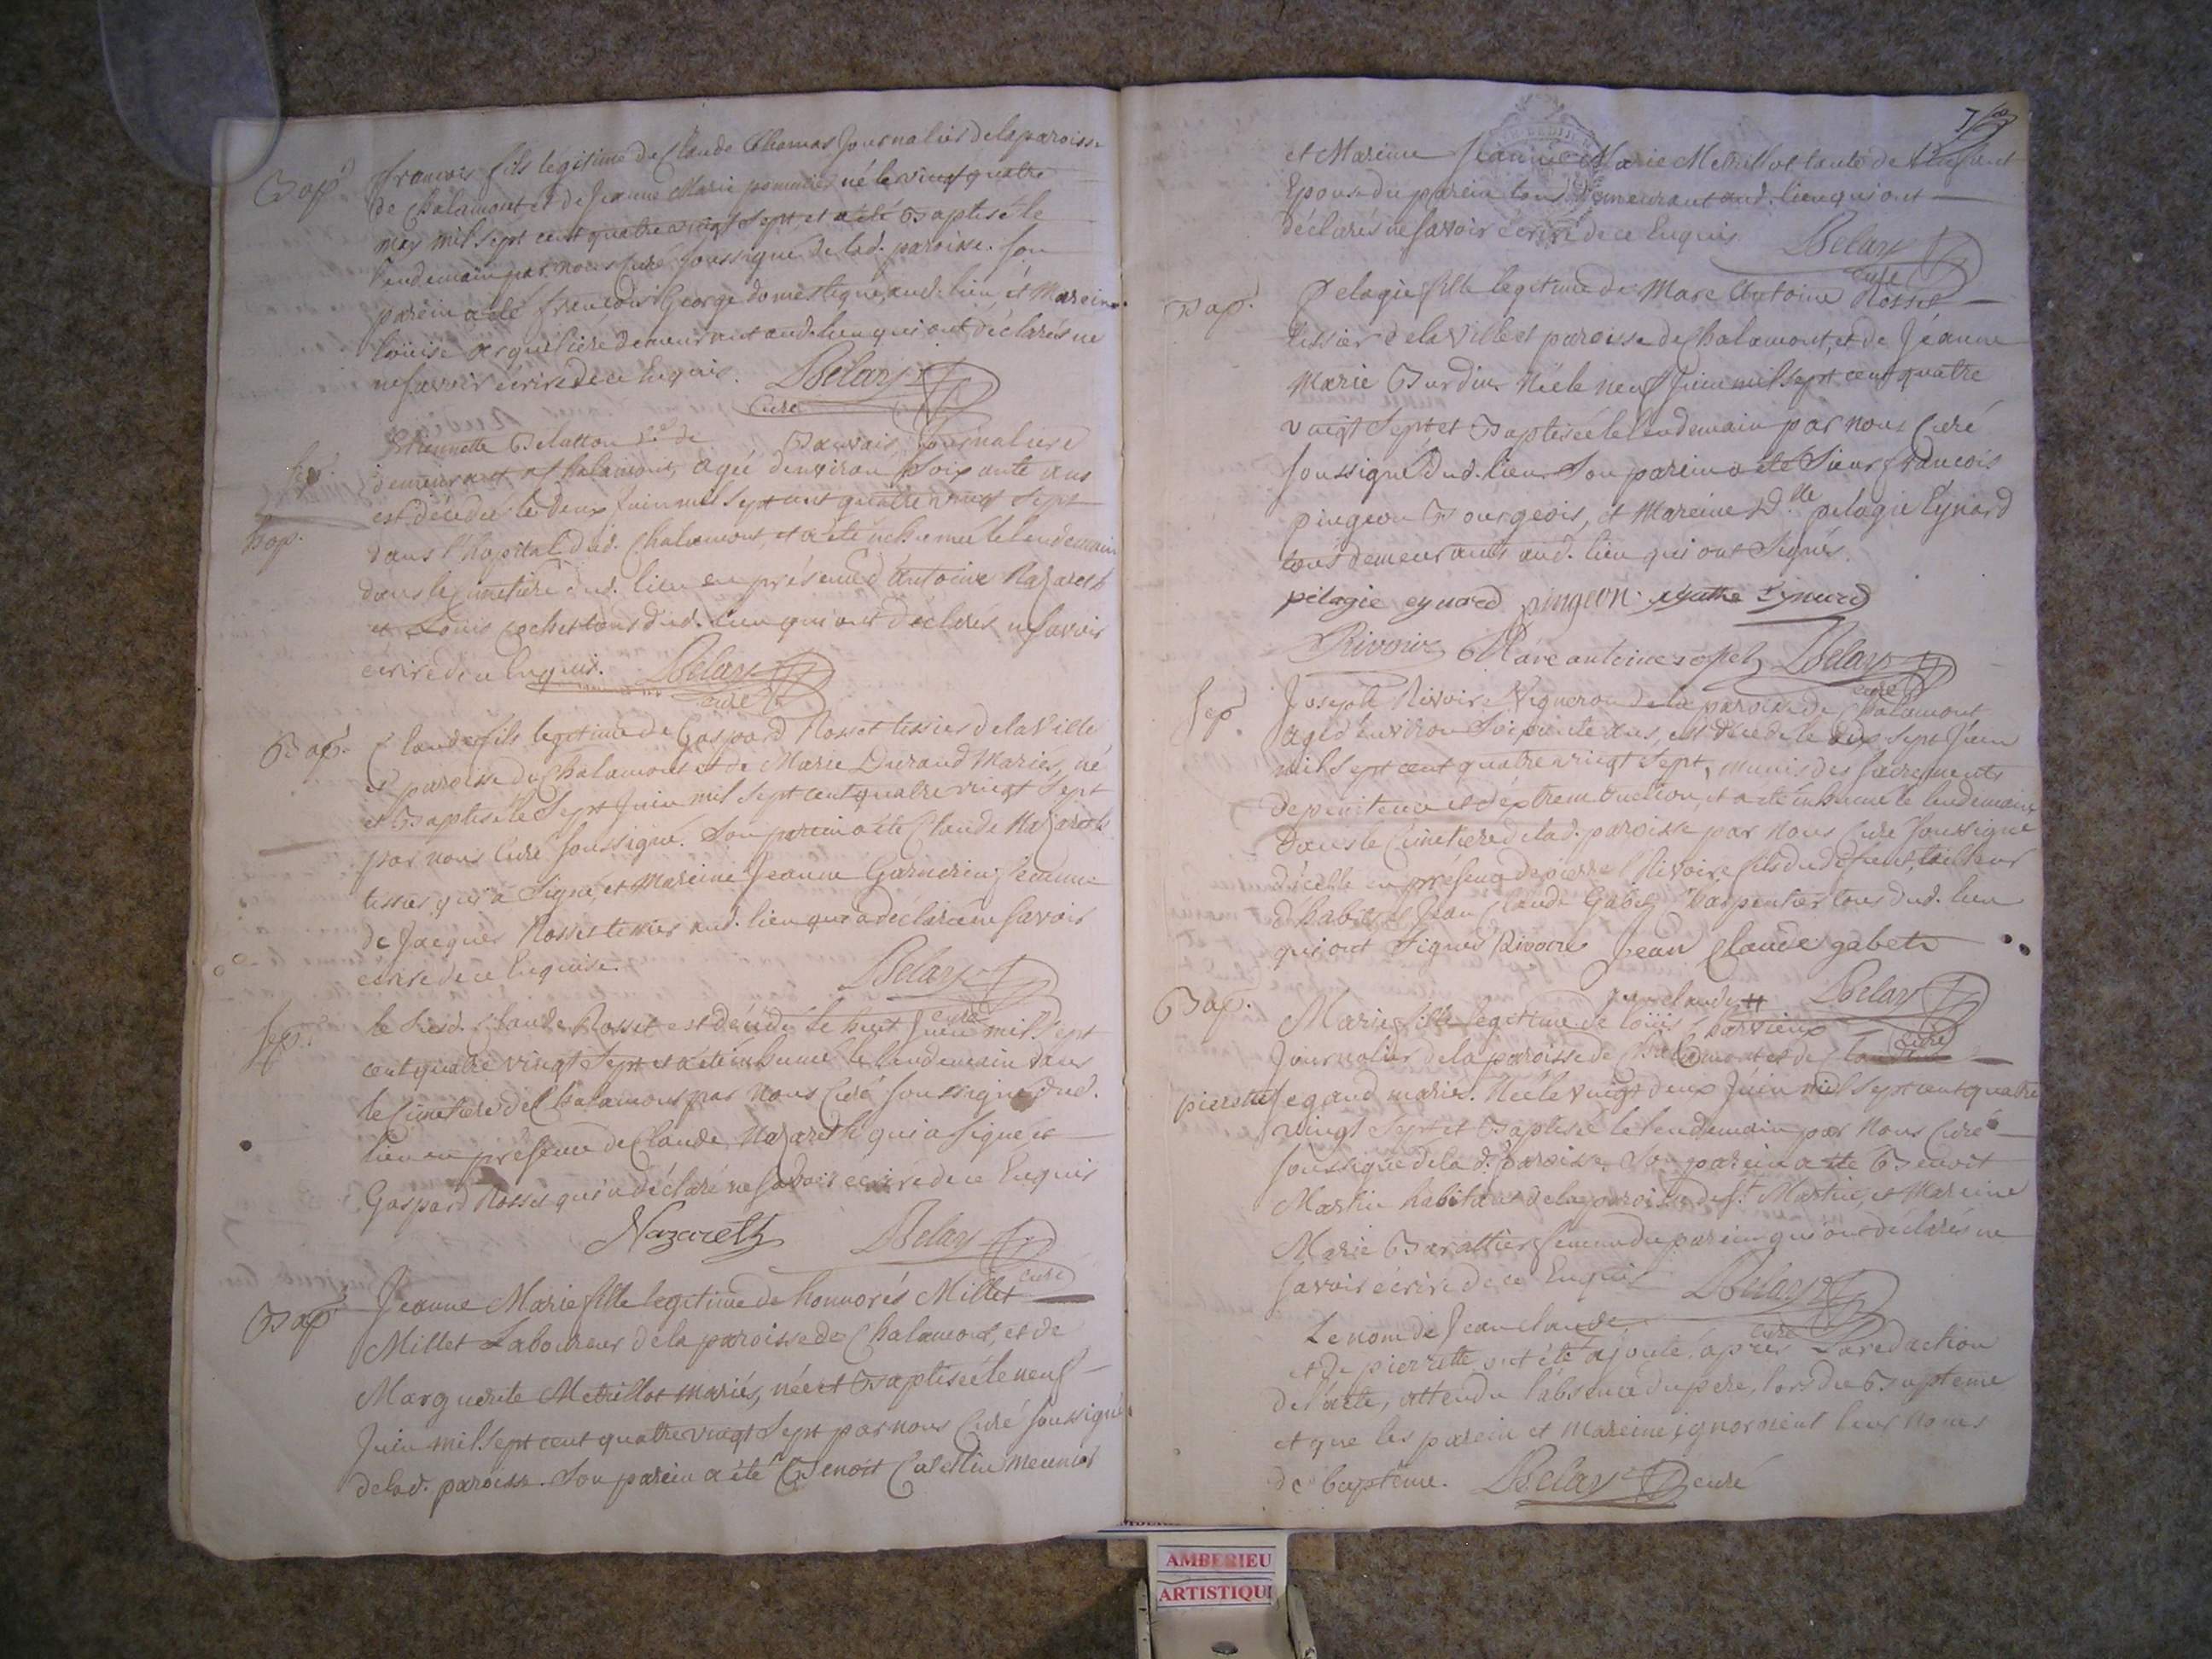 Bap.
françois fils légitime de Claude Thomas Journalier de la paroisse
de Chalamont et de Jeanne Marie pommier né le vingt quatre
may mil sept cent quatre vingt sept, et a été Baptisé le
lendemain par nous Curé soussigné de lad. paroisse. son
parein a été françois George domestique aud. lieu, et Mareine
Loüise demeurant aud. lieu qui ont déclarés ne
ne savoir écrire de ce Enquis. Belay
Curé
Sep.
Etiennette Vve de Bauvais Journaliere
demeurant a Chalamont, agée d'environ soixante ans
est décédée le deux Juin mil sept cent quatre vingt sept
hop.
dans l'hopital dud. Chalamont, et a été inhumée le lendemain
dans le Cimetiere dud. lieu en présence d'Antoine Nazareth
et Louis Cochet tous dud. lieu qui ont déclarés ne savoir
écrire de ce Enquis. Belay
curé
Bap.
Claude fils légitime de Gaspard Rosset tissier de la Ville
et paroisse de Chalamont et de Marie Durand Mariés, né
et Baptisé le Sept Juin mil sept cent quatre vingt sept
par nous Curé soussigné. Son parein a été Claude Nazareth
tissier qui a signé, et Mareine Jeanne Garnerin femme
de Jacques Rosset tissier aud. lieu qui a déclaré ne savoir
écrire de ce Enquise.
Belay
curé
Sep.
le susd. Claude Rosset est décédé le huit Juin mil sept
cent quatre vingt sept et a été inhumé le lendemain dans
le Cimetiere de Chalamont par nous Curé soussigné dud.
lieu en présence de Claude Nazareth qui a signé et
Gaspard Rosset qui a déclaré ne savoir écrire de ce Enquis
Nazareth Belay
curé
Bap.
Jeanne Marie fille légitime de honnorés Millet
Millet Laboureur de la paroisse de Chalamont, et de
Marguerite Metrillot mariés, née et Baptisée le neuf
Juin mil sept cent quatre vingt sept par nous Curé soussigné
de lad. paroisse. Son parein a été Benoit meunier
7
et Mareine Jeanne Marie Metrillot tante de l'enfant
Epouse du parein tous demeurant aud. lieu qui ont
déclarés ne savoir écrire de ce Enquis. Belay
curé
Bap.
Pelagie fille légitime de Marc Antoine Rosset
tissier de la Ville et paroisse de Chalamont, et de Jeanne
Marie Burdin Née le neuf Juin mil sept cent quatre
vingt sept et Baptisée le lendemain par nous Curé
soussigné dud. lieu. Son parein a été Sieur françois
pingeon Bourgeois, et Mareine Dlle pélagie Eynard
tous demeurants aud. lieu qui ont signés.
pélagie eynard pingeon Eynard
Rivoire Marc antoine roset Belay
curé
Sep.
Joseph Rivoire Vigneron de la paroisse de Chalamont
agé d'environ soixante ans, est décédé le dix sept Juin
mil sept cent quatre vingt sept, munis des sacrements
de penitence et d'extreme onction, et a été inhumé le lendemain
dans le Cimetiere de lad. paroisse par nous Curé soussigné
d'icelle en présence de pierre Rivoire fils du défunt, tailleur
d'habits et Jean Claude Gabet Charpentier tous dud. lieu
qui ont signés Rivoire Jean Claude gabet
Belay
curé
Bap.
Jean claude
Marie fille légitime de loüis Charvieux
Journalier de la paroisse de Chalamont et de Claudine
pierrette
segaud mariés. Née le vingt deux Juin mil sept cent quatre
vingt sept et Baptisée le lendemain par nous Curé
soussigné de la d. paroisse. Son parein a été Benoit
Martin habitant de la paroisse de St Martin, et Mareine
Marie Barattier femme du parein qui ont déclarés ne
savoir écrire de ce Enquis Belay
curé
Le nom de Jean claude
et de pierrette ont été ajouté après la redaction
de l'acte, attendu l'absence du pere, lors du Baptême
et que les parein et mareine ignoroient leur noms
de baptême. Belay curé
AMBERIEU
ARTISTIQU